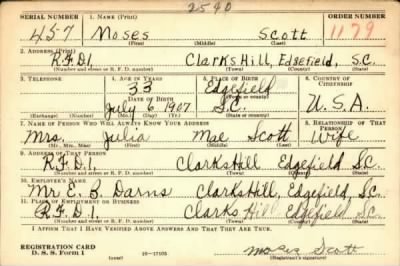 2540
SERIAL NUMBER 1. NAME (Print) ORDER NUMBER
457 Moses Scott 1179
(First) (Middle) (Last)
2. ADDRESS (Print)
R.F.D.1, Clarks Hill, Edgefield, S.C.
(Number and street or R. F. D. number) (Town) (County) (State)
3. TELEPHONE 4. AGE IN YEARS 5. PLACE OF BIRTH 6. COUNTRY OF CITIZENSHIP
33 Edgefield
(Town or county)
DATE OF BIRTH
July 6, 1907 S.C. U.S.A.
(Exchange) (Number) (Mo.) (Day) (Yr.) (State or country)
7. NAME OF PERSON WHO WILL ALWAYS KNOW YOUR ADDRESS 8. RELATIONSHIP OF THAT PERSON
Mrs. Julia Mae Scott Wife
(Mr., Mrs., Miss) (First) (Middle) (Last)
9. ADDRESS OF THAT PERSON
R.F.D.1, Clarks Hill Edgefield S.C.
(Number and street or R. F. D. number) (Town) (County) (State)
10. EMPLOYER'S NAME
Mr E. B. Clarks Hill, Edgefield, S.C.
11. PLACE OF EMPLOYMENT OR BUSINESS
R.F.D.1, Clarks Hill Edgefield S.C.
(Number and street or R. F. D. number) (Town) (County) (State)
I AFFIRM THAT I HAVE VERIFIED ABOVE ANSWERS AND THAT THEY ARE TRUE.
REGISTRATION CARD
D. S. S. Form 1 (over) Moses Scott
(Registrant's signature)